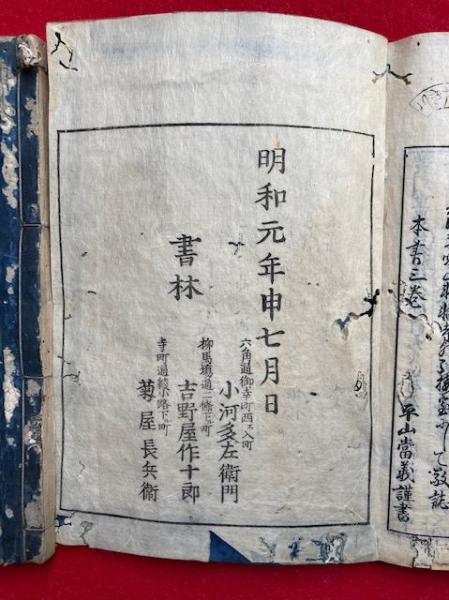 して敬誌
本書三巻
平山當義謹書
明和元年申七月日
書林
六角通御幸町西ヘ入町
小河多左衛門
柳馬場通二條下ル町
吉野屋作十郎
寺町通綾小路下ル町
菊屋長兵衛